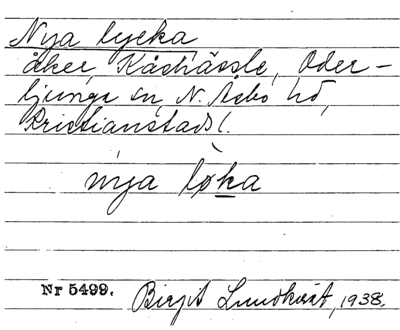 Nya lycka
åker, Kåshässle, Oder-
ljunga sn, N. Åsbo hd,
Kristianstads l.
nya løka
Nr 5499. Birgit Lundkvist, 1938.